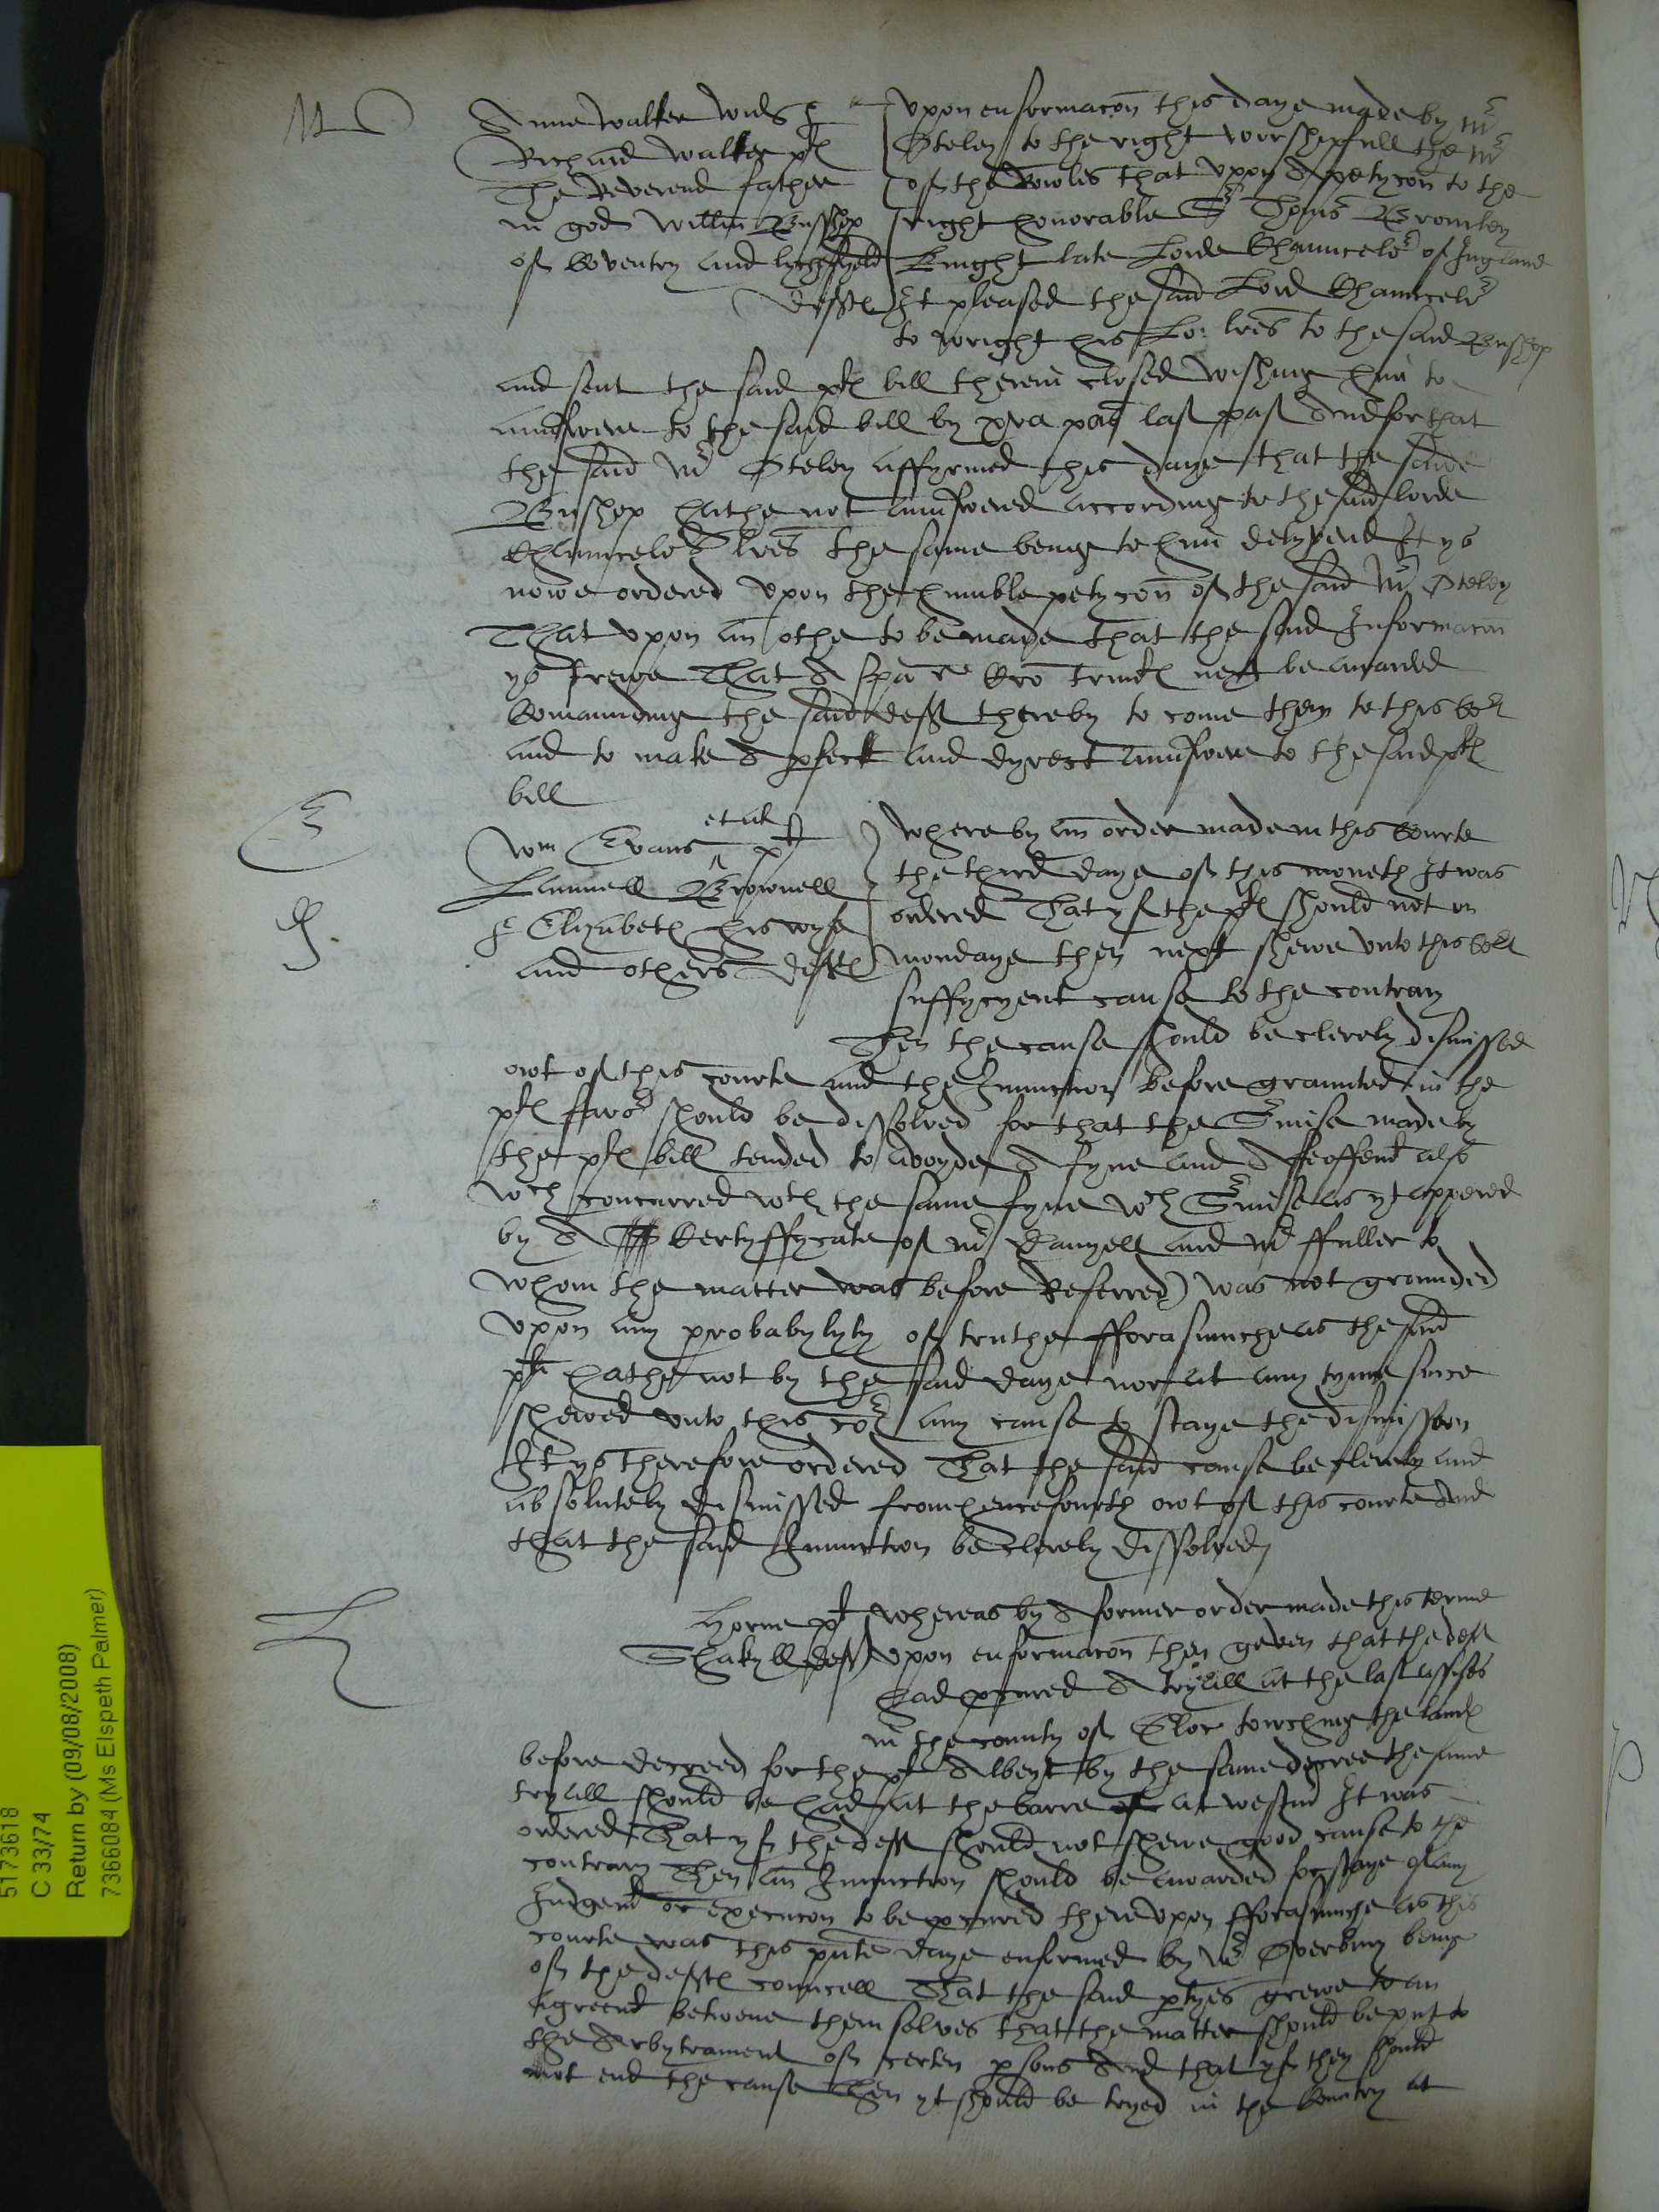 Anne Walker wid &
Richard Walker pl
The Reverend father
in god Willm Busshop
of Coventry and lychffyeld
defts
Upon enformacon this daye made by Mr
Oteley to the right worshipfull the Mr
of the Rowles that upon A petycon to the
right honorable Sr Thoms Bromley
knight late Lorde Chauncelor of Ingland
It pleased the said Lord Chauncelor
to wright his Lo: lres to the said Busshop
and sent the said pl bill therein closed wishing him to
aunswere to the said bill by xva pas last past And for that
the said Mr Oteley affyrmed this daye that the saide
Busshop hathe not aunswered according to the said lorde
Chauncelors lres the same being to him delyvered It ys
nowe ordered upon the humble petycon of the said Mr Oteley
That upon an othe to be made that the said Informacon
ys trewe That A spa re Cro trinit next be awarded
Comaunding the said deft thereby to come then to this Cort
and to make A pfect and dyrect aunswere to the said pl
bill
E
Wm Evans et al pl
Lamuell Brownell
& Elizabeth his wyfe
and others defts
Where by an order made in this Courte
the third daye of this moneth It was
ordered That yf the pl should not on
mondaye then next shewe unto this Cort
suffycyent cause to the contrary
Then the cause should be clerely dismissed
owt of this courte and the Iniunction before graunted in the
pl favor should be dissolved for that the Surmise made by
the pl bill tended to avoyde A fyne and A feoffemt also
wch concurred wth the same fyne wch Surmise as yt appered
by A Certyffycate of Mr Danyell and Mr ffuller to
whom the matter was before Referred) was not grounded
upon any probabylyty of truthe fforasmuche as the said
pl hathe not by the said daye nor at any tyme since
shewed unto this cor any cause to staye the dismission
It ys therefore ordered That the said cause be clerely and
absolutely dismissed fromhencefourth owt of this courte And
that the said Iniunction be clerely dissolved
Horne pl
Shakyll deft
Whereas by A former order made this terme
upon enformacon then geven that the deft
had pcured A tryall at the last assises
in the county of Gloc towching the lands
before decreed for the pl Albeyt by the same decree the same
tryall should be had at the barre at westm It was
ordered That yf the deft should not shewe good cause to the
contrary Then an Iniunction should be awarded for staye of any
Iudgemt or execucon to be pcured thereupon fforasmuche as this
courte was this pnte daye enformed by Mr Overbury being
of the defts councell That the said ptyes grewe to an
agreemt betwene them selves that the matter should be put to
the Arbytrament of certen psons And that yf they should
not end the cause Then yt should be tryed in the Countrey at
5173618
C 33/74
Return by (09/08/2008)
7366084 (Ms Elspeth Palmer)